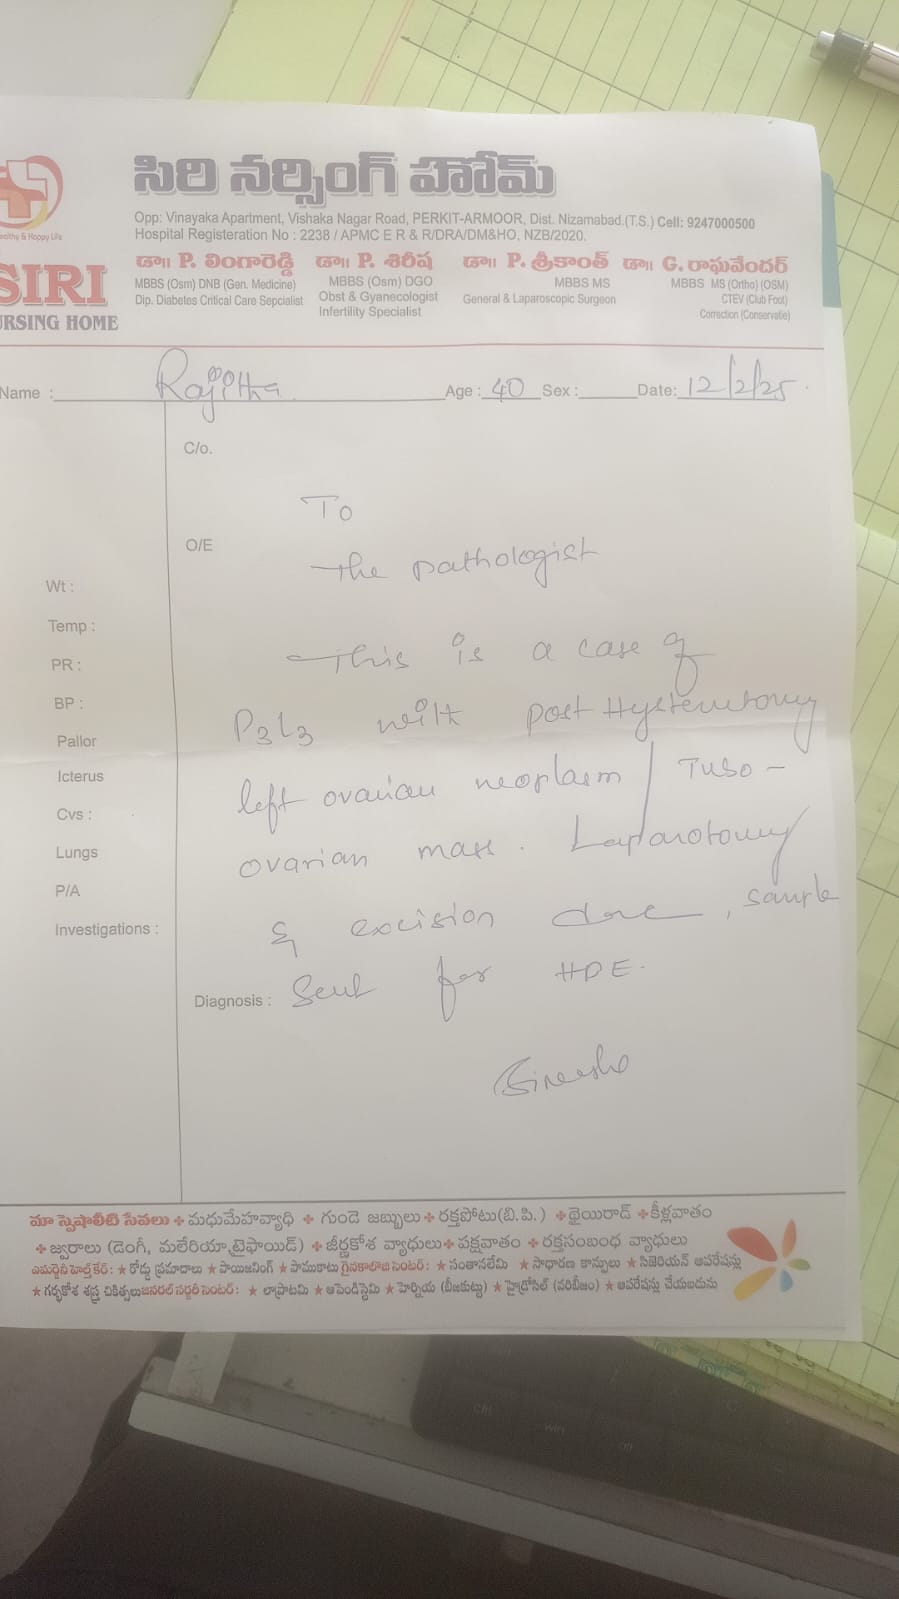 సిరి నర్సింగ్ హోమ్
Healthy & Happy Life
SIRI
NURSING HOME
Opp: Vinayaka Apartment, Vishaka Nagar Road, PERKIT-ARMOOR, Dist. Nizamabad.(T.S.) Cell: 9247000500
Hospital Registeration No : 2238 / APMC E R & R/DRA/DM&HO, NZB/2020.
డా॥ P. లింగారెడ్డి
MBBS (Osm) DNB (Gen. Medicine)
Dip. Diabetes Critical Care Sepcialist
డా॥ P. శిరీష
MBBS (Osm) DGO
Obst & Gyanecologist
Infertility Specialist
డా॥ P. శ్రీకాంత్
MBBS MS
General & Laparoscopic Surgeon
డా॥ G. రాఘవేందర్
MBBS MS (Ortho) (OSM)
CTEV (Club Foot)
Correction (Conservatie)
Name : Rajitha Age : 40 Sex : Date: 12/2/25
C/o.
To
O/E
The pathologist
Wt :
Temp :
This is a case of
PR :
BP :
P3L3 with post Hysterectomy
Pallor
Icterus
left ovarian neoplasm / Tubo-
Cvs :
Lungs
ovarian mass. Laparotomy
P/A
& excision done, sample
Investigations :
Diagnosis : Sent for HPE.
మా స్పెషాలిటి సేవలు + మధుమేహవ్యాధి + గుండె జబ్బులు + రక్తపోటు(బి.పి.) + థైయిరాడ్ + కీళ్లవాతం
+ జ్వరాలు (డెంగీ, మలేరియా,టైఫాయిడ్) + జీర్ణకోశ వ్యాధులు + పక్షవాతం + రక్తసంబంధ వ్యాధులు
ఎమర్జెన్సి హెల్త్‌కేర్: ★ రోడ్డు ప్రమాదాలు ★ పాయిజనింగ్ ★ పాముకాటు గైనకాలాజి సెంటర్: ★ సంతానలేమి ★ సాధారణ కాన్పులు ★ సిజెరియన్ ఆపరేషన్లు
★ గర్భకోశ శస్త్ర చికిత్సలు జనరల్ సర్జరీ సెంటర్: ★ లాప్రాటమి ★ అపెండిస్టెమి ★ హెర్నియ (బీజకుట్టు) ★ హైడ్రోసిల్ (వరిబీజం) ★ ఆపరేషన్లు చేయబడును
Ctrl
Win
Alt